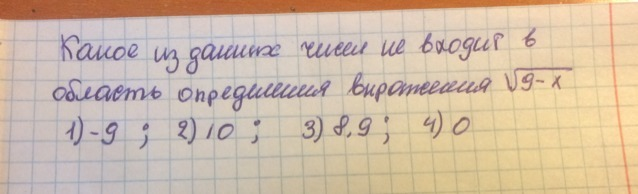 Какое из данных чисел не входит в
область определения выражения √9-x
1) -9 ; 2) 10 ; 3) 8,9 ; 4) 0